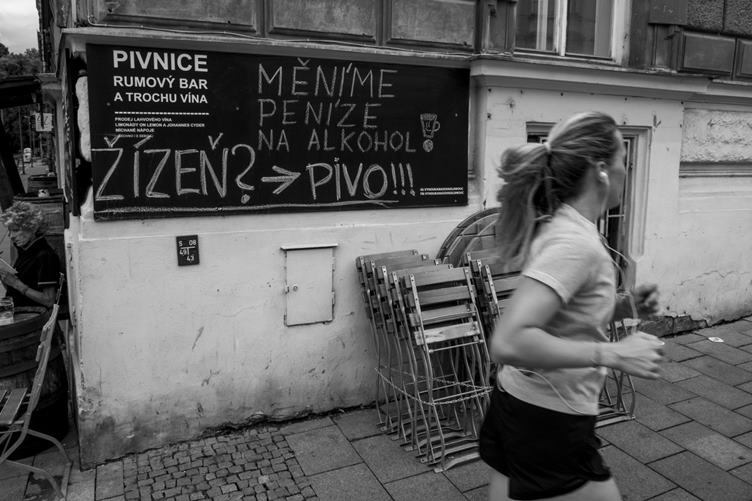 PIVNICE
RUMOVÝ BAR
A TROCHU VÍNA
PRODEJ LAHVOVÉHO VÍNA
LIMONÁDY ON LEMON A JOHANNES CYDER
MÍCHANÉ NÁPOJE
MĚNÍME
PENÍZE
NA ALKOHOL
ŽÍZEŇ? → PIVO!!!
S 08
49
43